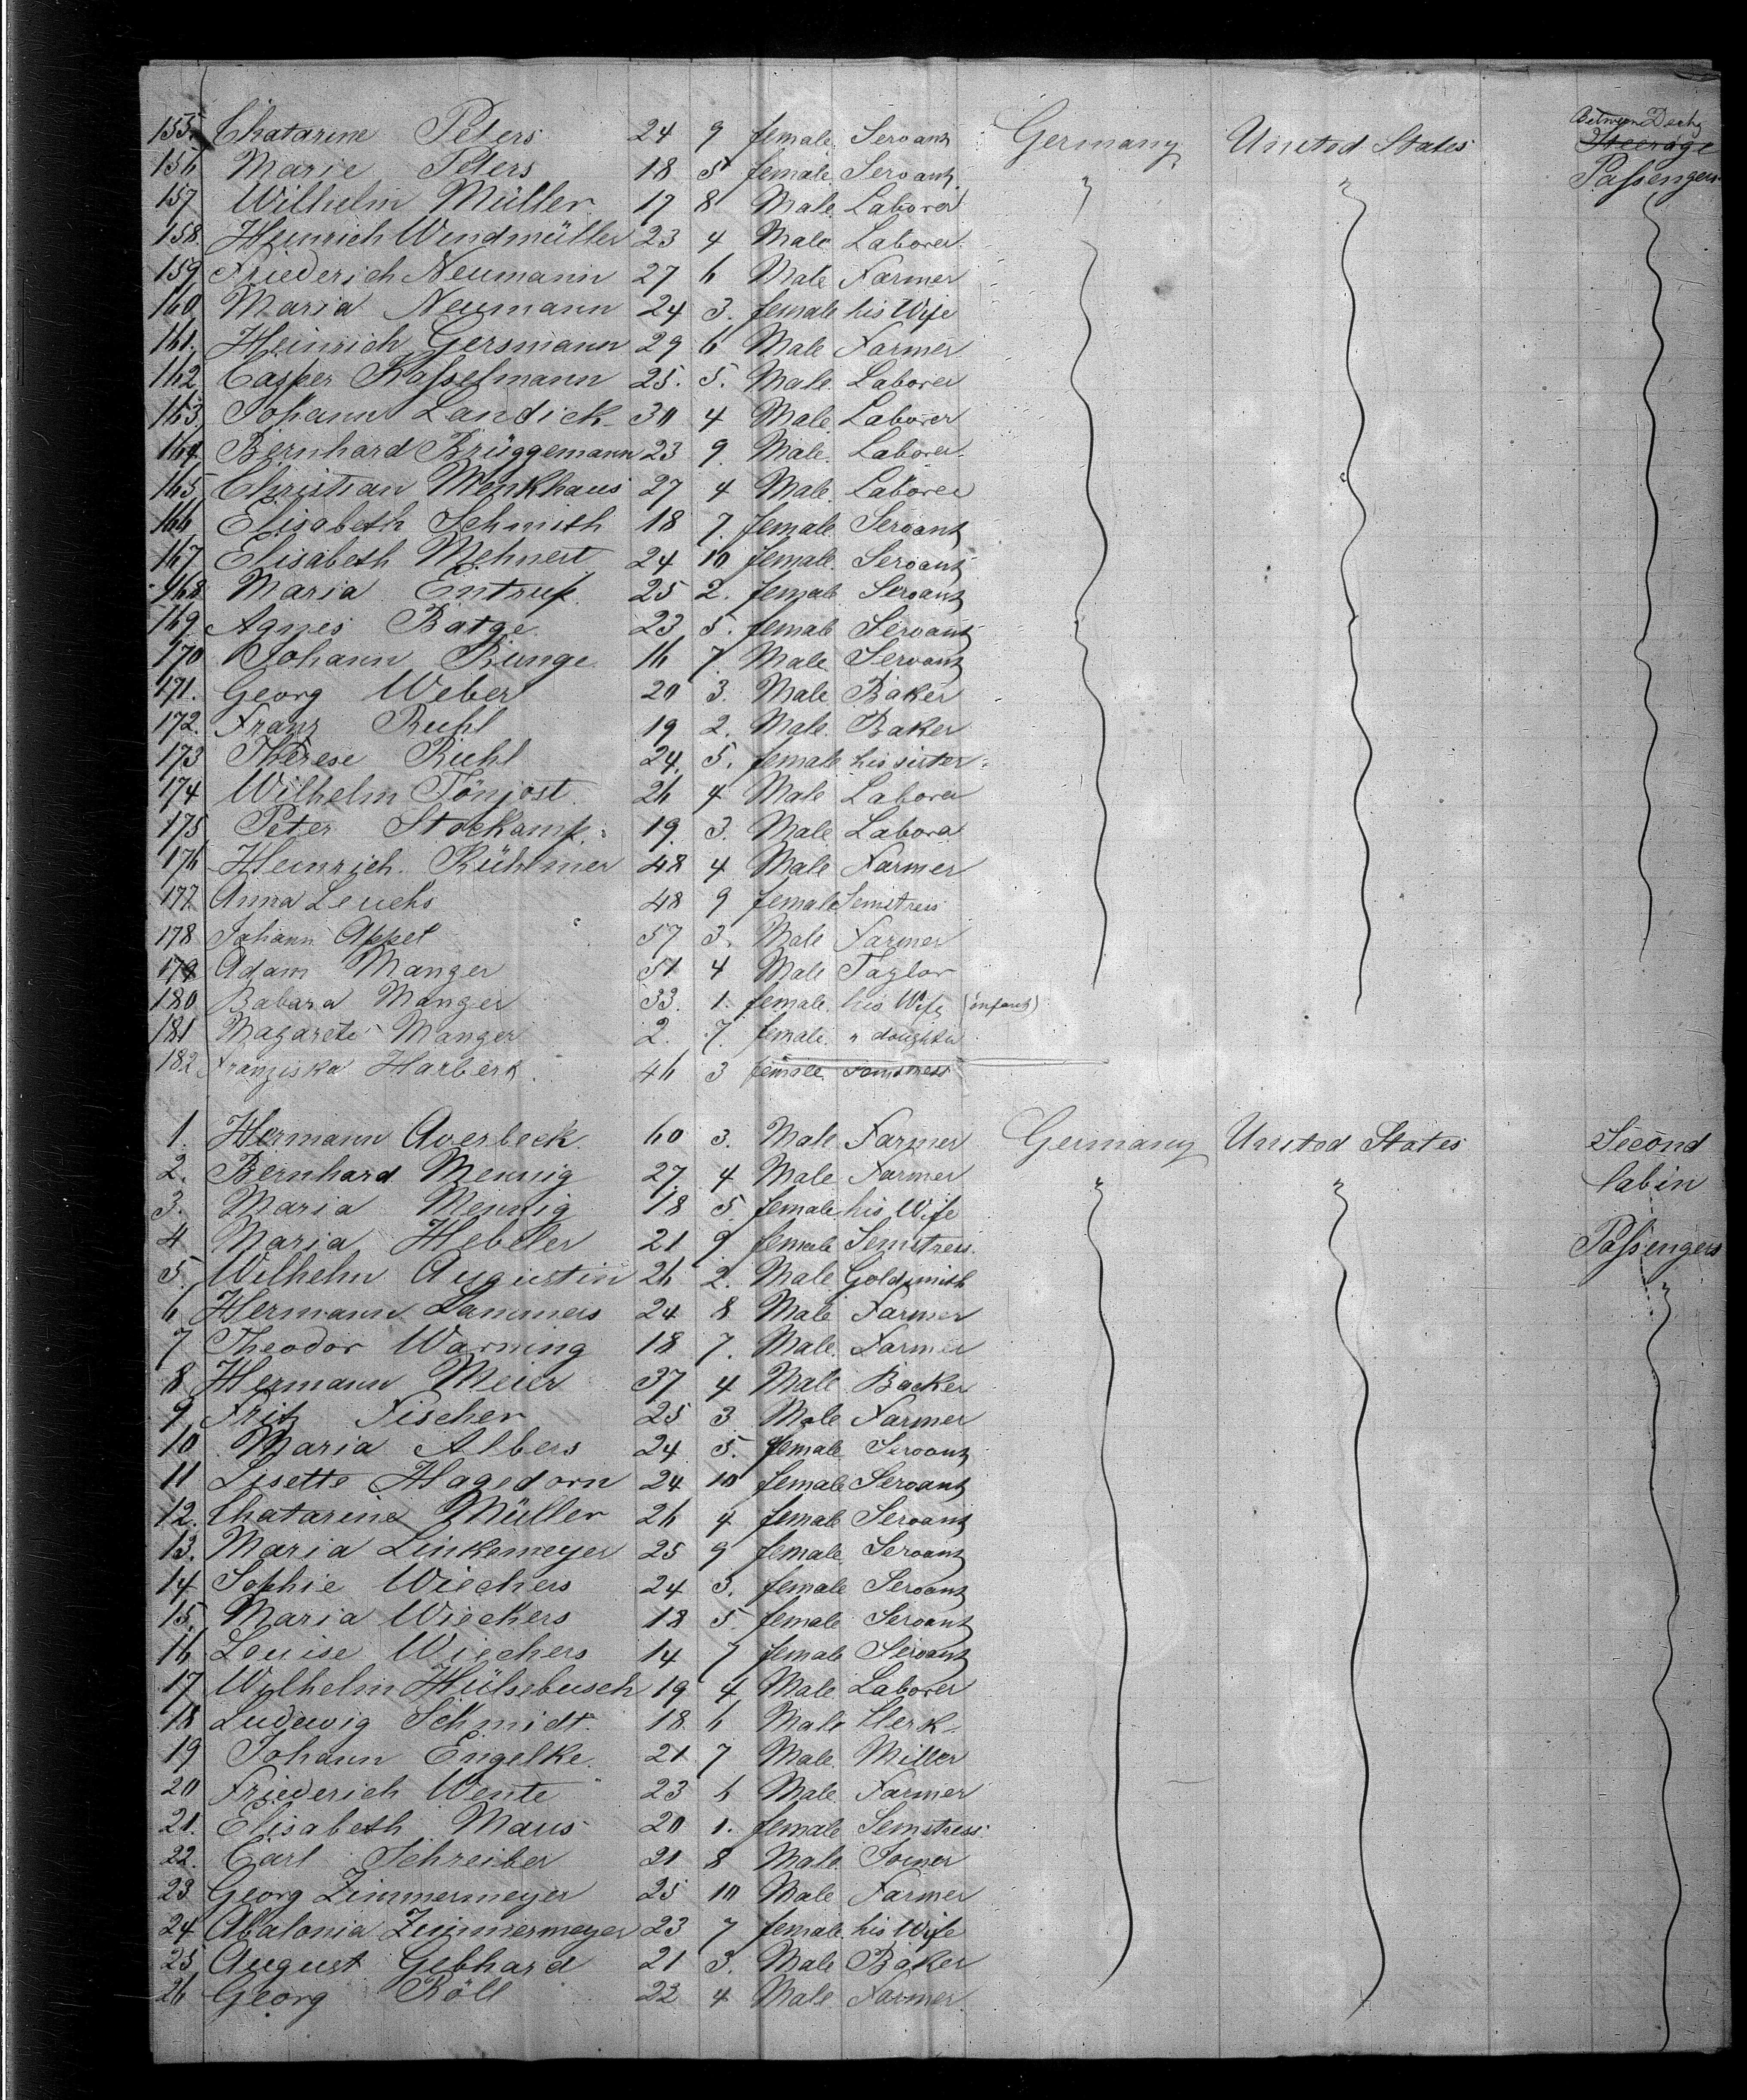 155 Chatarine Peters 24 9 female Servant Germany United States Between Decks Steerage
156 Marie Peters 18 5 female Servant " " Passengers
157 Wilhelm Müller 17 8 Male Laborer
158. Heinrich Windmüller 23 4 Male Laborer
159 Friederich Neumann 27 6 Male Farmer
160 Maria Neumann 24 3. female his Wife
161. Heinrich Gersmann 29 6 Male Farmer
162 Casper Kasselmann 25. 5. Male Laborer
163 Johann Landick 30 4 Male Laborer
164 Bernhard Brüggemann 23 9 Male Laborer
165 Christian Menkhaus 27 4 Male Laborer
166 Elisabeth Schmith 18 7. female Servant
167 Elisabeth Mehnert 24 10 female Servant
168 Maria Entrup 25 2. female Servant
169 Agnes Batge 23 5. female Servant
170 Johann Runge 16 7 Male Servant
171. Georg Weber 20 3. Male Baker
172. Franz Ruhl 19 2. Male Baker
173 Therese Ruhl 24. 5. female his sister
174 Wilhelm Tönjost 26 4 Male Laborer
175 Peter Stockamp 19. 3. Male Labora
176 Heinrich Rühlmer 48 4 Male Farmer
177 Anna Leuchs 48 9 female Semstress
178 Johann Appel 57 3. Male Farmer
179 Adam Manger 51 4 Male Taylor
180 Babara Manger 33. 1. female his Wife (infant)
181 Magarete Manger 2. 7. female " doughter
182 Franziska Harberk 46 3 female Semstress
1. Hermann Averbeck 60 3. Male Farmer Germany United States Second
2. Bernhard Mennig 27. 4 Male Farmer " " Cabin
3. Maria Mennig 18 5 female his Wife
4 Maria Hebeler 21 9 female Semstress Passengers
5. Wilhelm Augustin 26 2. Male Goldsmith
6 Hermann Lammers 24 8 Male Farmer
7 Theodor Warning 18 7. Male Farmer
8 Hermann Meier 37 4 Male Backer
9 Fritz Fischer 25 3 Male Farmer
10 Maria Albers 24 5. female Servant
11 Lisette Hagedorn 24 10 female Servant
12. Chatarine Müller 26 4 female Servant
13. Maria Linkemeyer 25 9 female Servant
14 Sophie Wiechers 24 3. female Servant
15. Maria Wiechers 18 5. female Servant
16 Louise Wiechers 14 7 female Servant
17 Wilhelm Hülsebusch 19 4 Male Laborer
18 Ludewig Schmidt 18 6 Male Clerk
19 Johann Engelke 21 7 Male Miller
20 Friederich Wente 23 6 Male Farmer
21. Elisabeth Maus 20 1. female Semstress
22. Carl Schreiber 21 8 Male Joiner
23 Georg Zimmermeyer 25 10 Male Farmer
24 Abalonia Zimmermeyer 23 7 female his Wife
25 August Gebhard 21 3. Male Baker
26 Georg Röll 22 4 Male Farmer